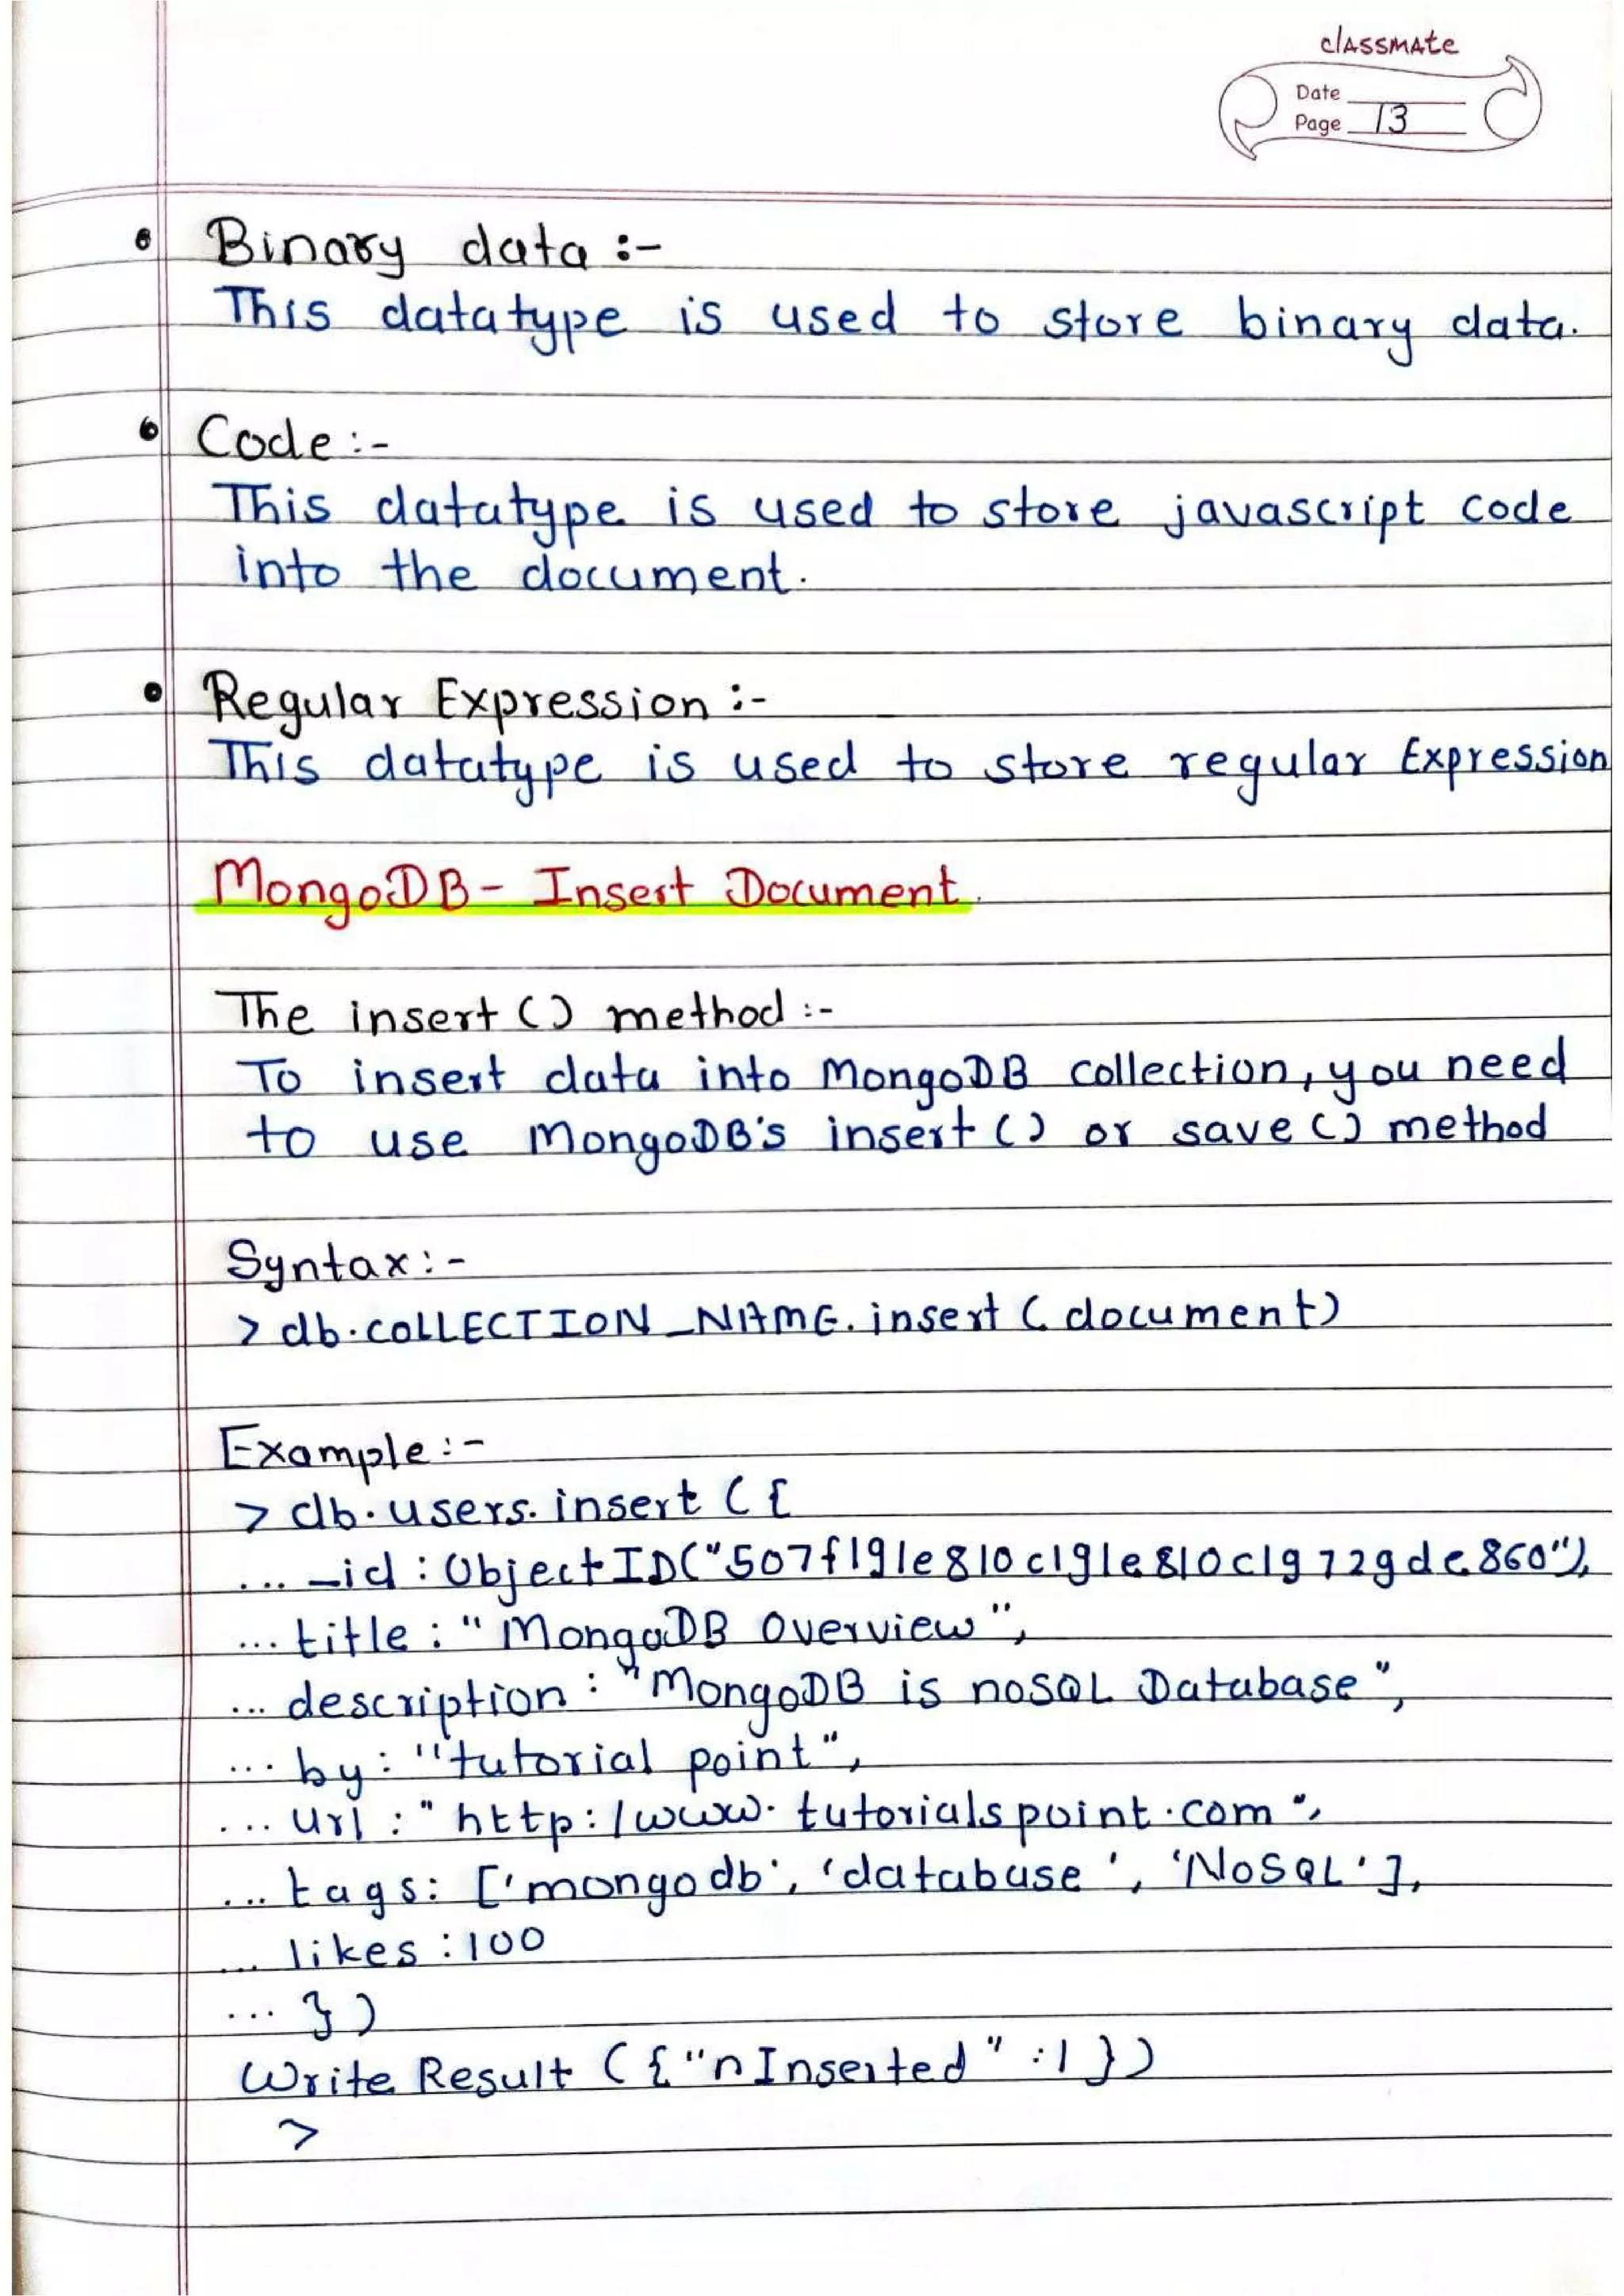 classmate
Date
Page 13
• Binary data :-
This datatype is used to store binary data.
• Code :-
This datatype is used to store javascript code
into the document.
• Regular Expression :-
This datatype is used to store regular Expression
MongoDB - Insert Document.
The insert () method :-
To insert data into MongoDB collection, you need
to use MongoDB's insert () or save () method
Syntax : -
> db.COLLECTION_NAME.insert (document)
Example : -
> db.users.insert ({
... _id : ObjectID("507f191e810c191e810c19729de860"),
... title : "MongoDB Overview",
... description : "MongoDB is noSQL Database",
... by : "tutorial point",
... url : "http:/www.tutorialspoint.com",
... tags: ['mongodb', 'database', 'NoSQL'],
... likes : 100
... })
Write Result ({"nInserted" : 1 })
>